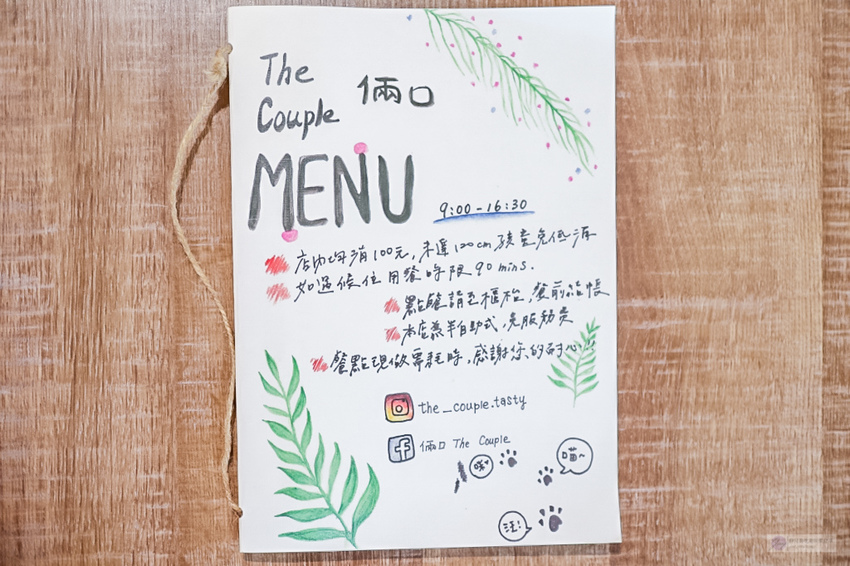 The
Couple 倆口
MENU
9:00-16:30
店內均消100元,未達120cm孩童免低消
如遇候位用餐時限90mins.
點餐請至櫃枱,餐前結帳
本店為半自助式,免服務費
餐點現做需耗時,感謝您的耐心!!
the_couple.tasty
倆口 The Couple
喵~
汪!